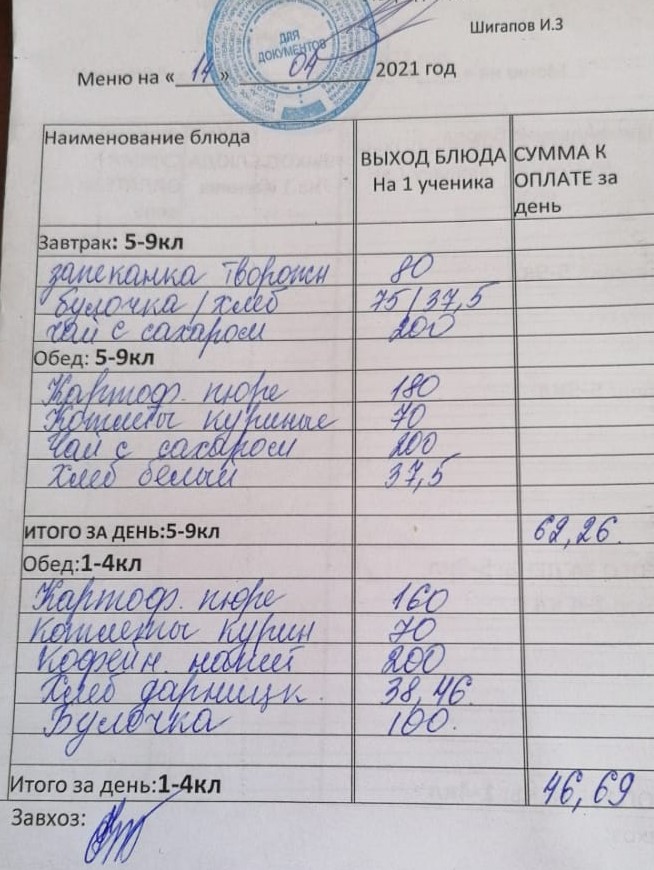 Шигапов И.З
ДЛЯ ДОКУМЕНТОВ
Меню на « 14 » 04 2021 год
Наименование блюда ВЫХОД БЛЮДА На 1 ученика СУММА К ОПЛАТЕ за день
Завтрак: 5-9кл
запеканка творожн 80
булочка / хлеб 75/37,5
чай с сахаром 200
Обед: 5-9кл
Картоф. пюре 180
Котлеты куриные 70
Чай с сахаром 200
Хлеб белый 37,5
ИТОГО ЗА ДЕНЬ:5-9кл 62,26.
Обед:1-4кл
Картоф. пюре 160
котлеты курин 70
Кофейн. напит 200
Хлеб дарницк. 38,46.
Булочка 100.
Итого за день:1-4кл 46,69
Завхоз: